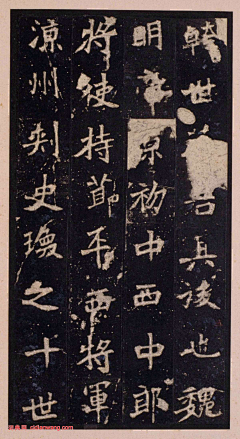 幹世君其後也魏
明帝景初中西中郎
將使持節平西將軍
涼州刾史瑍之十世